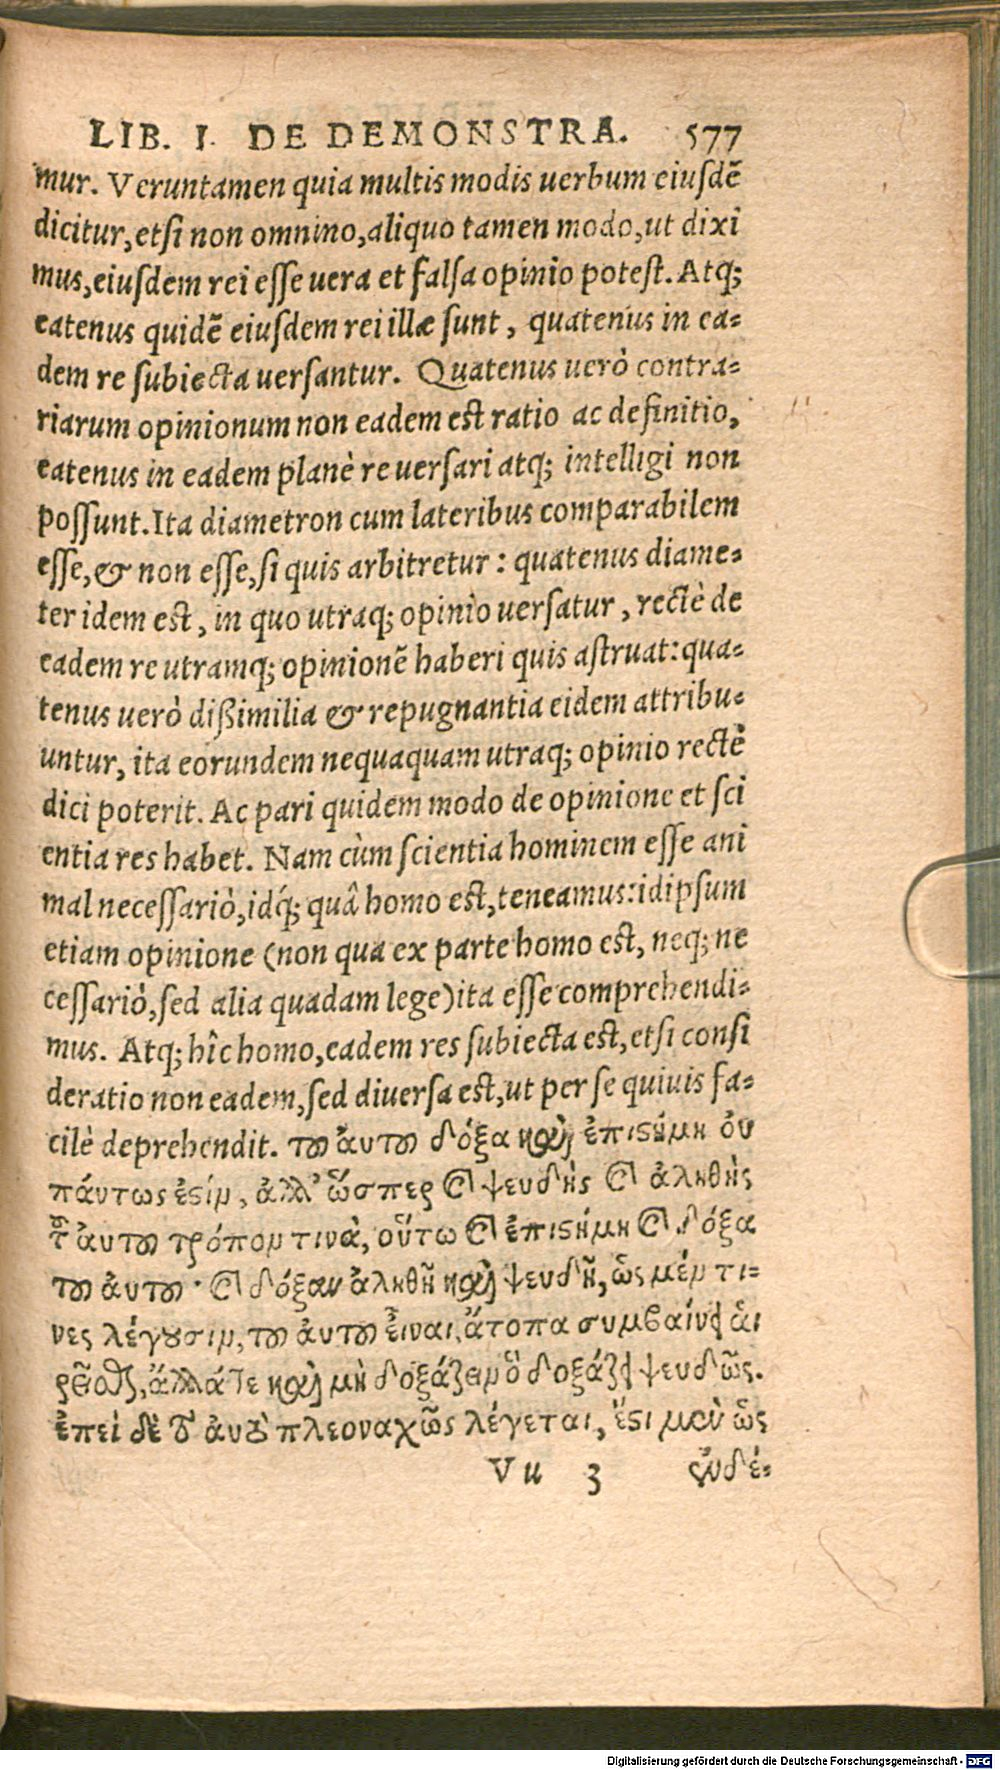 LIB. I. DE DEMONSTRA. 577
mur. Veruntamen quia multis modis uerbum eiuſdẽ
dicitur, etſi non omnino, aliquo tamen modo, ut dixi
mus, eiuſdem rei eſſe uera et falſa opinio poteſt. Atq;
eatenus quidẽ eiuſdem rei illæ ſunt, quatenus in ea-
dem re ſubiecta uerſantur. Quatenus uerò contra-
riarum opinionum non eadem eſt ratio ac definitio,
eatenus in eadem planè re uerſari atq; intelligi non
poſſunt. Ita diametron cum lateribus comparabilem
eſſe, & non eſſe, ſi quis arbitretur: quatenus diame-
ter idem eſt, in quo utraq; opinio uerſatur, rectè de
eadem re utramq; opinionẽ haberi quis aſtruat: qua-
tenus uerò dißimilia & repugnantia eidem attribu-
untur, ita eorundem nequaquam utraq; opinio rectè
dici poterit. Ac pari quidem modo de opinione et ſci
entia res habet. Nam cùm ſcientia hominem eſſe ani
mal neceſſariò, idq́; quâ homo eſt, teneamus: idipſum
etiam opinione (non qua ex parte homo eſt, neq; ne
ceſſariò, ſed alia quadam lege) ita eſſe comprehendi-
mus. Atq; hîc homo, eadem res ſubiecta eſt, etſi conſi
deratio non eadem, ſed diuerſa eſt, ut per ſe quiuis fa-
cilè deprehendit. τοῦ ἀυτοῦ δόξα καὶ ἐπιϛήμη ὀυ
πάντως ἐϛίν, ἀλλ' ὥσπερ καὶ ψευδὴς καὶ ἀληθὴς
τοῦ ἀυτοῦ τρόπον τινὰ, οὕτω καὶ ἐπιϛήμη καὶ δόξα
τοῦ ἀυτοῦ. καὶ δόξαν ἀληθῆ καὶ ψευδῆ, ὡς μέν τι-
νες λέγουσιν, τοῦ ἀυτοῦ εἶναι, ἄτοπα συμβαίνει ἁι
ρεῖσθαι, ἄλλα τε καὶ μὴ δοξάζειν ὃ δοξάζει ψευδῶς.
ἐπεὶ δὲ τὸ ἀυτὸ πλεοναχῶς λέγεται, ἔϛι μὲν ὡς
Vu 3 ἐνδέ-
Digitalisierung gefördert durch die Deutsche Forschungsgemeinschaft - DFG